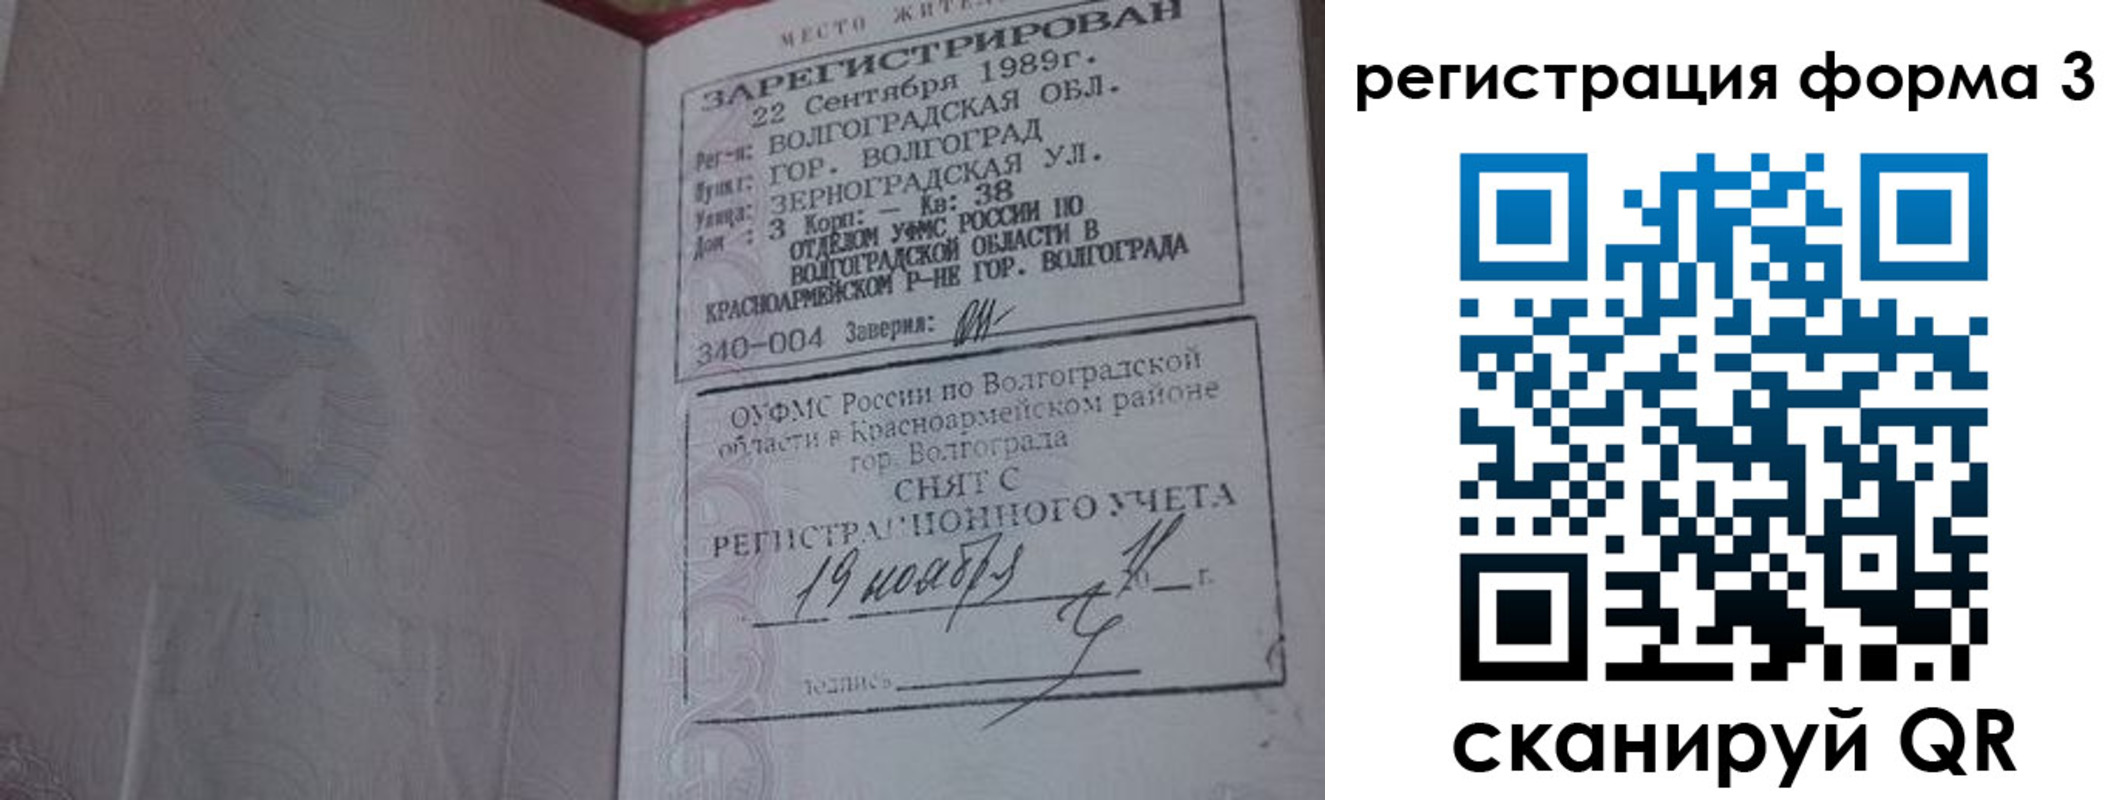 МЕСТО ЖИТЕЛ
ЗАРЕГИСТРИРОВАН
22 Сентября 1989г.
Рег-н: ВОЛГОГРАДСКАЯ ОБЛ.
Пункт: ГОР. ВОЛГОГРАД
Улица: ЗЕРНОГРАДСКАЯ УЛ.
Дом : 3 Корп: — Кв: 38
ОТДЕЛОМ УФМС РОССИИ ПО
ВОЛГОГРАДСКОЙ ОБЛАСТИ В
КРАСНОАРМЕЙСКОМ Р-НЕ ГОР. ВОЛГОГРАДА
340-004 Заверил:
ОУФМС России по Волгоградской
области в Красноармейском районе
гор. Волгограда
СНЯТ С
РЕГИСТРАЦИОННОГО УЧЕТА
19 ноября 2011 г.
подпись
регистрация форма 3
сканируй QR